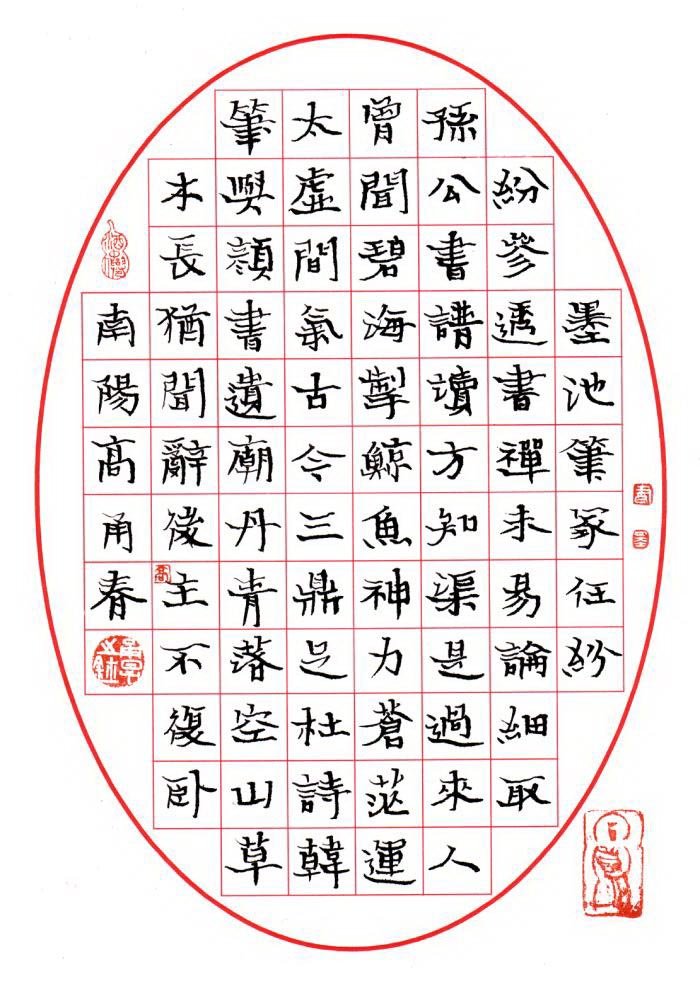 墨池筆冢任紛
紛參透書禪未易論細取
孫公書譜讀方知渠是過來人
曾聞碧海掣鯨魚神力蒼茫運
太虛間氣古今三鼎足杜詩韓
筆與顏書遺廟丹青落空山草
木長猶聞辭後主不復卧
南陽高甬春